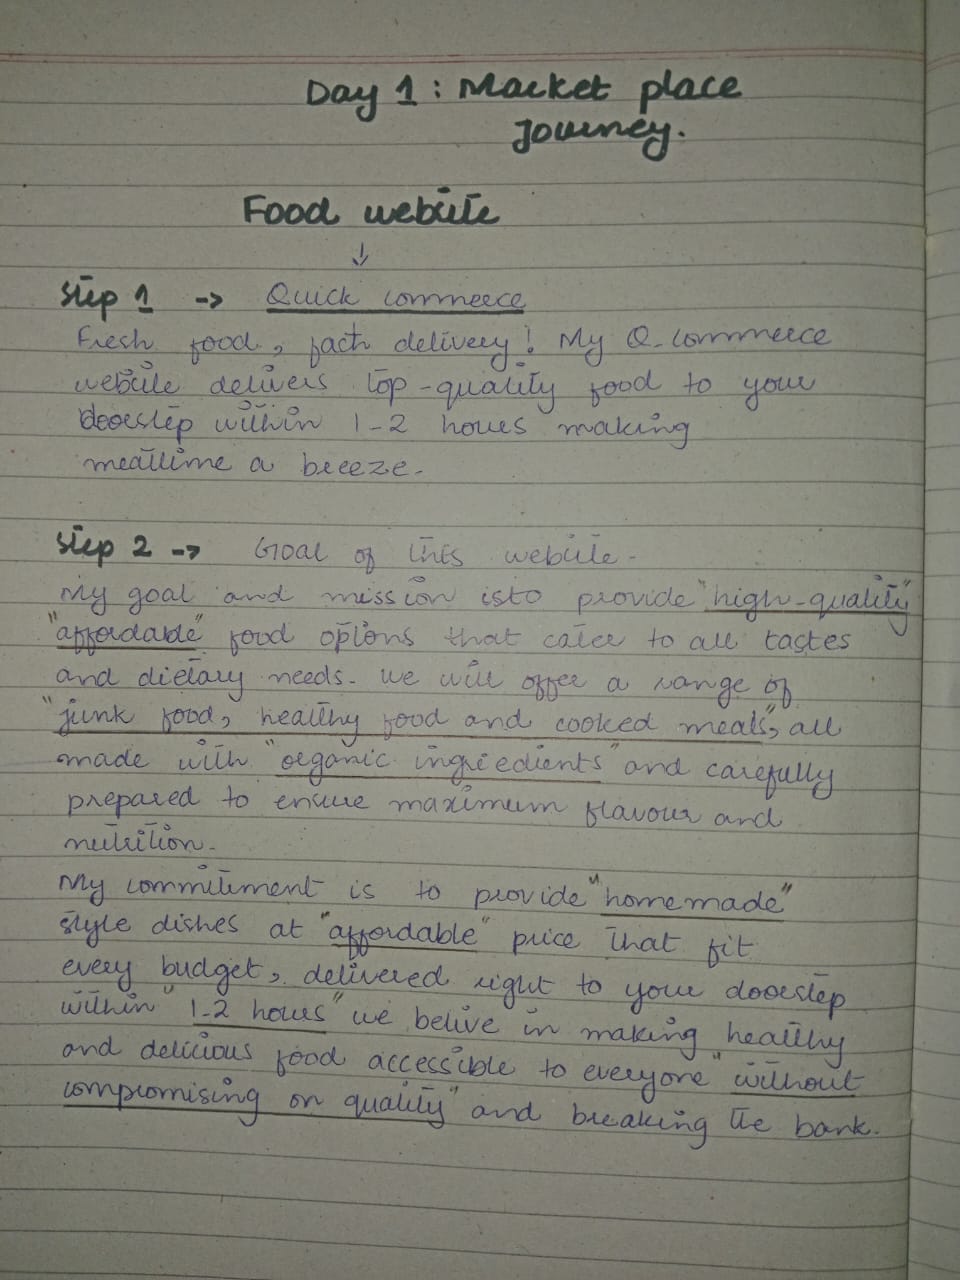 Day 1: Market place
Journey.
Food website
↓
Step 1 -> Quick commerce
Fresh food, fast delivery! My Q-commerce
website delivers top-quality food to your
doorstep within 1-2 hours making
mealtime a breeze.
Step 2 -> Goal of this website.
My goal and mission is to provide "high-quality"
"affordable" food options that cater to all tastes
and dietary needs. we will offer a range of
"junk food, healthy food and cooked meals", all
made with "organic ingredients" and carefully
prepared to ensure maximum flavour and
nutrition.
My commitement is to provide "homemade"
style dishes at "affordable" price that fit
every budget, delivered right to your doorstep
within "1-2 hours" we belive in making healthy
and delicious food accessible to everyone "without
compromising on quality" and breaking the bank.